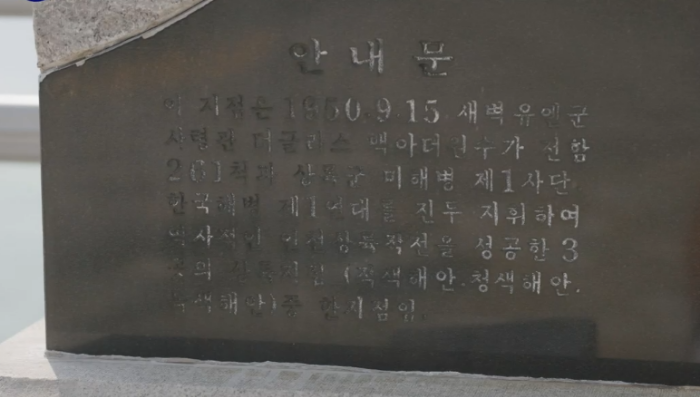 안내문
이 지점은 1950.9.15 새벽 유엔군
사령관 더글라스 맥아더원수가 전함
261척과 상륙군 미해병 제1사단
한국해병 제1연대를 진두 지휘하여
역사적인 인천상륙작전을 성공한 3
곳의 상륙지점 (적색해안.청색해안.
녹색해안)중 한지점임.